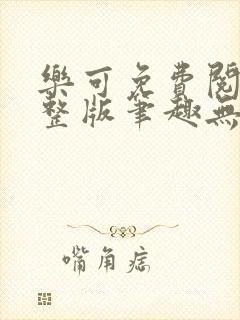 樂可免費閱
整版筆趣無
嘴角痣